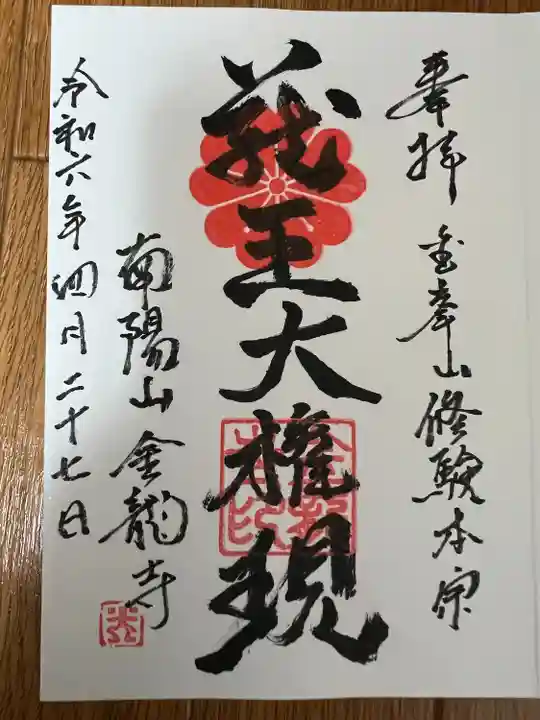 奉拝
金峯山修験本宗
蔵王大権現
南陽山金龍寺
令和六年四月二十七日